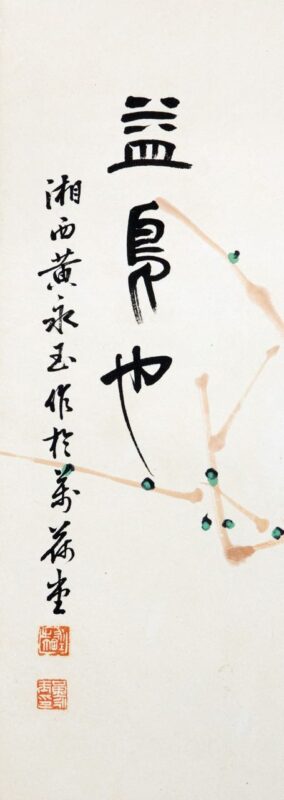 益鳥也
湘西黄永玉作於萬荷堂